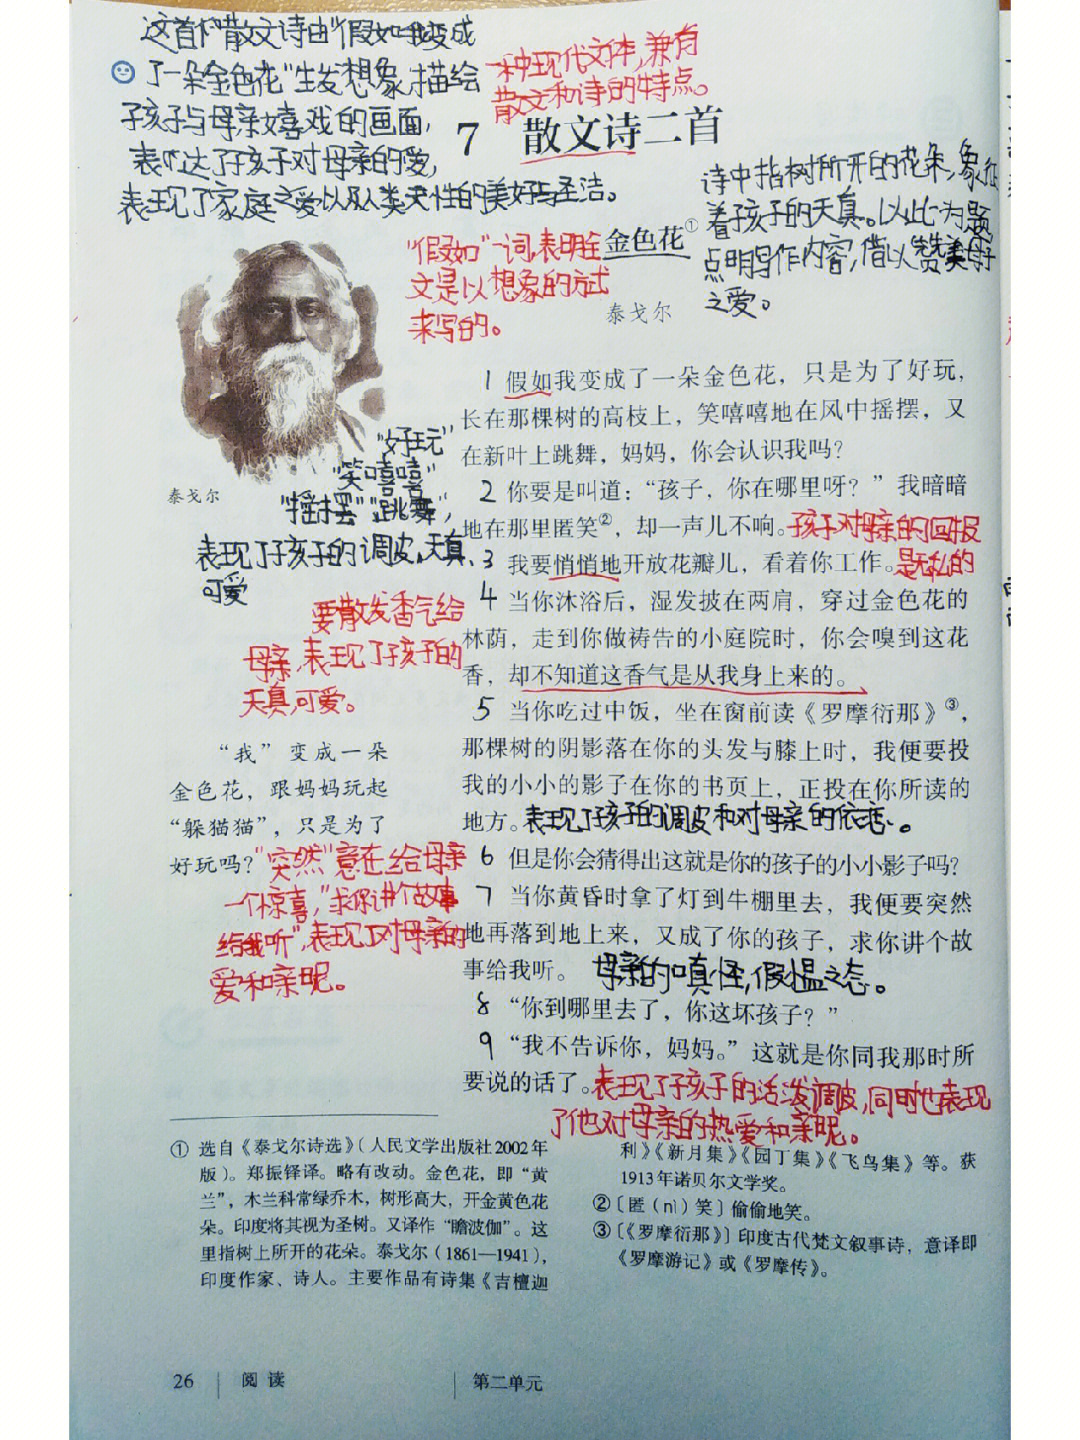 这首散文诗由“假如我变成
了一朵金色花”生发想象,描绘
孩子与母亲嬉戏的画面,
表达了孩子对母亲的爱,
表现了家庭之爱以及人类天性的美好与圣洁。
一种现代文体,兼有
散文和诗的特点。
7 散文诗二首
诗中指树所开的花朵,象征
着孩子的天真。以此为题
点明写作内容,借以赞美母子
之爱。
“假如”一词,表明全
文是以想象的方式
来写的。
金色花①
泰戈尔
泰戈尔
1 假如我变成了一朵金色花，只是为了好玩，
长在那棵树的高枝上，笑嘻嘻地在风中摇摆，又
在新叶上跳舞，妈妈，你会认识我吗？
“好玩”
“笑嘻嘻”
“摇摆”“跳舞”,
表现了孩子的调皮、天真、
可爱
2 你要是叫道：“孩子，你在哪里呀？”我暗暗
地在那里匿笑②，却一声儿不响。
孩子对母亲的回报
是无私的
3 我要悄悄地开放花瓣儿，看着你工作。
4 当你沐浴后，湿发披在两肩，穿过金色花的
林荫，走到你做祷告的小庭院时，你会嗅到这花
香，却不知道这香气是从我身上来的。
要散发香气给
母亲,表现了孩子的
天真可爱。
5 当你吃过中饭，坐在窗前读《罗摩衍那》③，
那棵树的阴影落在你的头发与膝上时，我便要投
我的小小的影子在你的书页上，正投在你所读的
地方。
表现了孩子的调皮和对母亲的依恋。
“我”变成一朵
金色花，跟妈妈玩起
“躲猫猫”，只是为了
好玩吗？
“突然”意在给母亲
一个惊喜,“求你讲个故事
给我听”,表现了对母亲的
爱和亲昵。
6 但是你会猜得出这就是你的孩子的小小影子吗？
7 当你黄昏时拿了灯到牛棚里去，我便要突然
地再落到地上来，又成了你的孩子，求你讲个故
事给我听。
母亲的嗔怪,假愠之态。
8 “你到哪里去了，你这坏孩子？”
9 “我不告诉你，妈妈。”这就是你同我那时所
要说的话了。
表现了孩子的活泼调皮,同时也表现
了他对母亲的热爱和亲昵。
① 选自《泰戈尔诗选》（人民文学出版社2002年
版）。郑振铎译。略有改动。金色花，即“黄
兰”，木兰科常绿乔木，树形高大，开金黄色花
朵。印度将其视为圣树。又译作“瞻波伽”。这
里指树上所开的花朵。泰戈尔（1861—1941），
印度作家、诗人。主要作品有诗集《吉檀迦
利》《新月集》《园丁集》《飞鸟集》等。获
1913年诺贝尔文学奖。
②〔匿（nì）笑〕偷偷地笑。
③〔《罗摩衍那》〕印度古代梵文叙事诗，意译即
《罗摩游记》或《罗摩传》。
26 阅读 第二单元